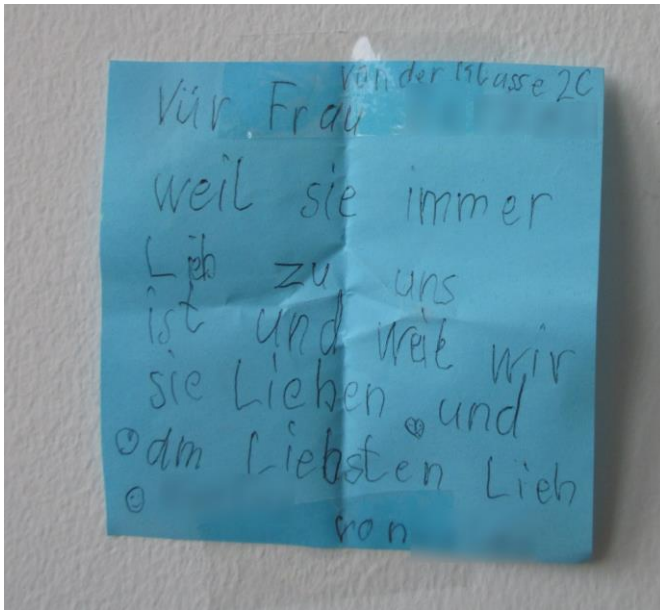 von der Klasse 2C
Vür Frau
weil sie immer
Lieb zu uns
ist und weil wir
sie Lieben und
am Liebsten Lieb
von